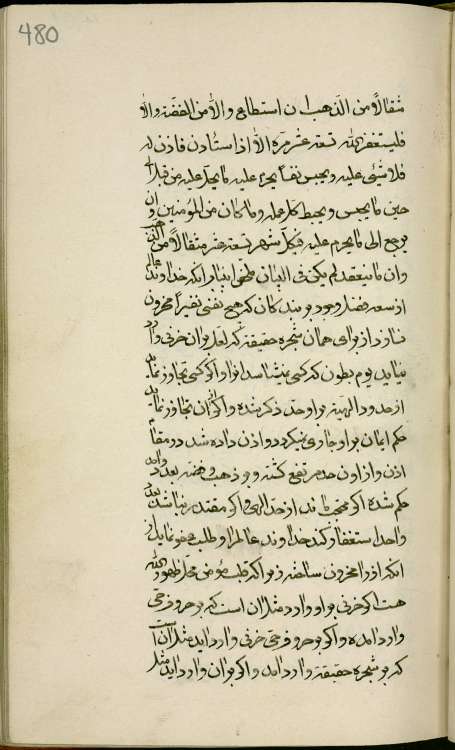 480
مثقالاً من الذهب ان استطاع والا من الفضة والا
فليستغفر الله تسعة عشر مرة الا اذا استاذن فاذن له
فلا شیئ علیه و یحبس نفساً یحرم علیه ما یحل علیه من قبل الی
حین ما یحبس و یحبط کل عمله و ما کان من المؤمنین و ان
یرجع الی ما یحرم علیه فی کل شهر تسعة عشر مثقالاً من الذهب
و ان ما ینعقد لم یکن فی البیان ملخص این باب آنکه خداوند عالم
از سعه فضل و جود بر بندگان که هیچ نفسی نفسی را محزون
نسازد از برای همان شجره حقیقة که لعل بر آن حزنی وارد
نیاید یوم بطون که کسی نمیشناسد او را و اگر کسی تجاوز نماید
از حدود الهیه بر او حد ذکر شده و اگر از آن تجاوز نماید
حکم ایمان بر او جاری نمیگردد و اذن داده شد در مقام
اذن و از اون حد مرتفع گشته و بر ذهب و فضه بعدد واحد
حکم شده اگر محتجب ماند از حد الهی و اگر مقتدر نباشد بعدد
واحد استغفار کند خداوند عالم را و طلب عفو نماید از
آنکه او را محزون ساخته زیرا که قلب مؤمن محل ظهور الله
هست اگر حزنی بر او وارد مثل آن است که بر حروف حی
وارد آمده و اگر بر حروف حی حزنی وارد آید مثل آن است
که بر شجره حقیقة وارد آمد و اگر بر آن وارد آید مثل